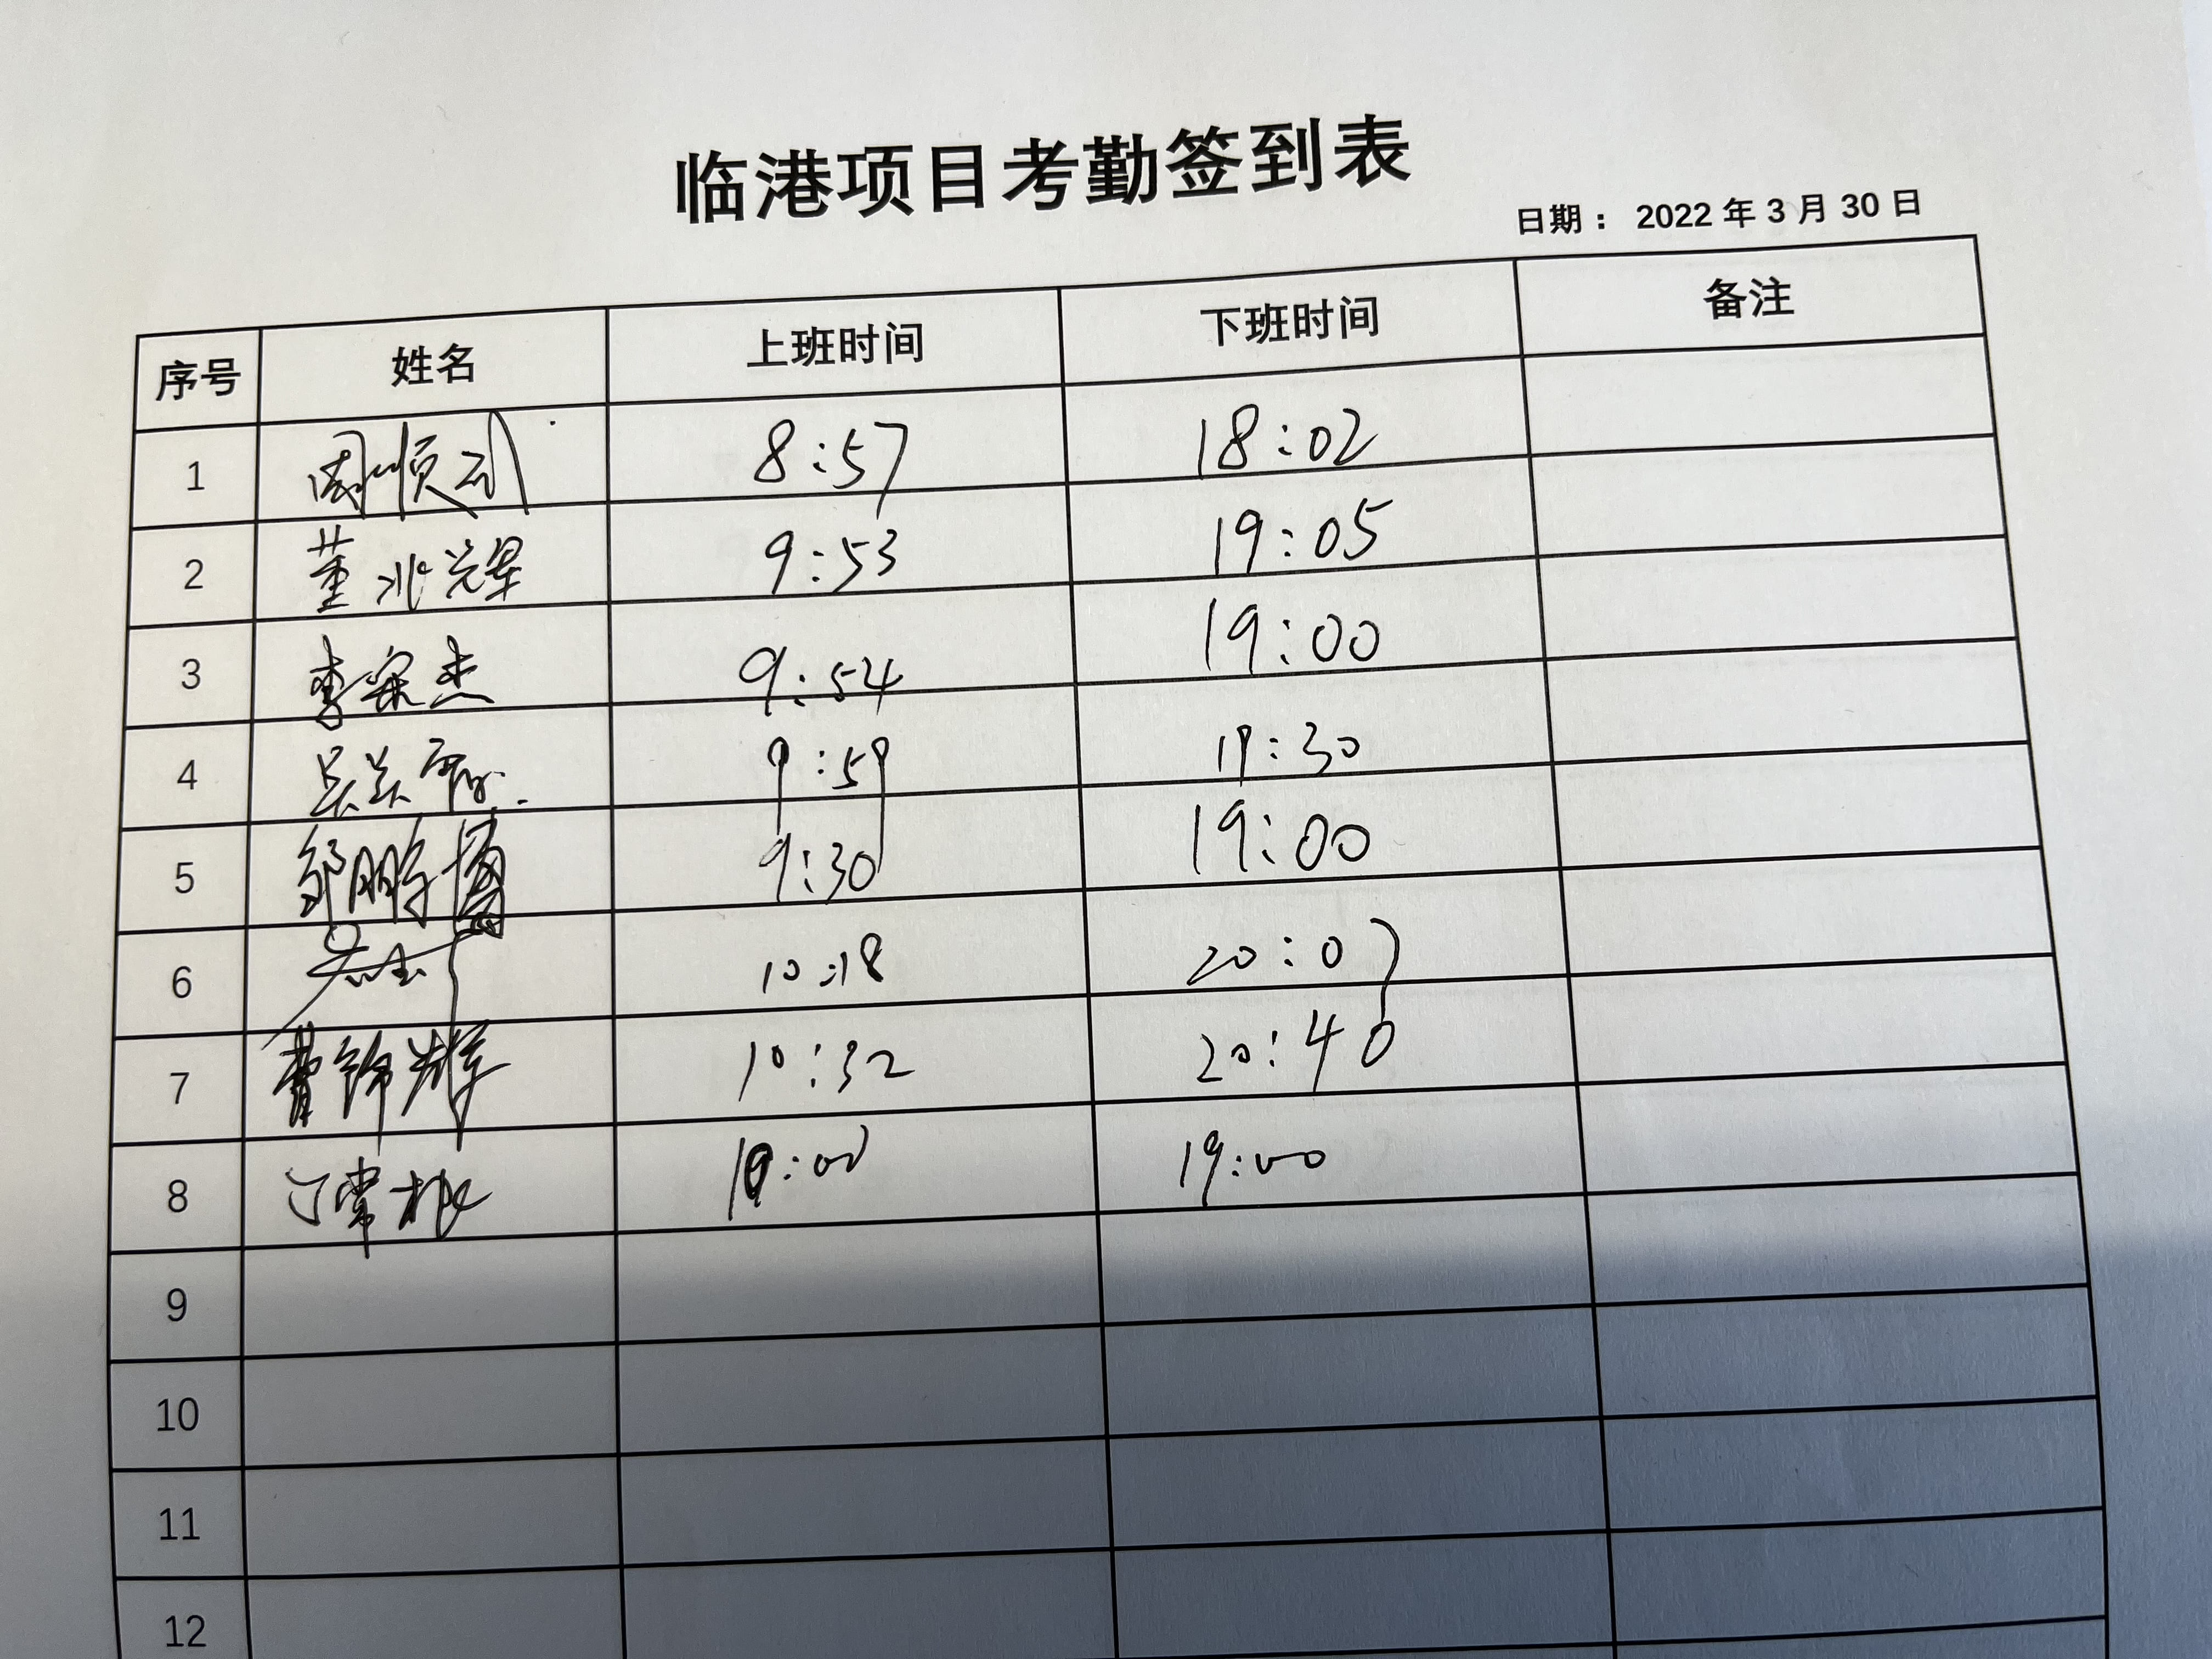 临港项目考勤签到表
日期： 2022 年 3 月 30 日
序号 姓名 上班时间 下班时间 备注
1 周顺 8:57 18:02
2 董兆辉 9:53 19:05
3 李宗杰 9:54 19:00
4 吴 9:59 19:30
5 邹鹏 9:30 19:00
6 10:18 20:07
7 曹锦辉 10:32 20:40
8 丁常 19:00
9
10
11
12